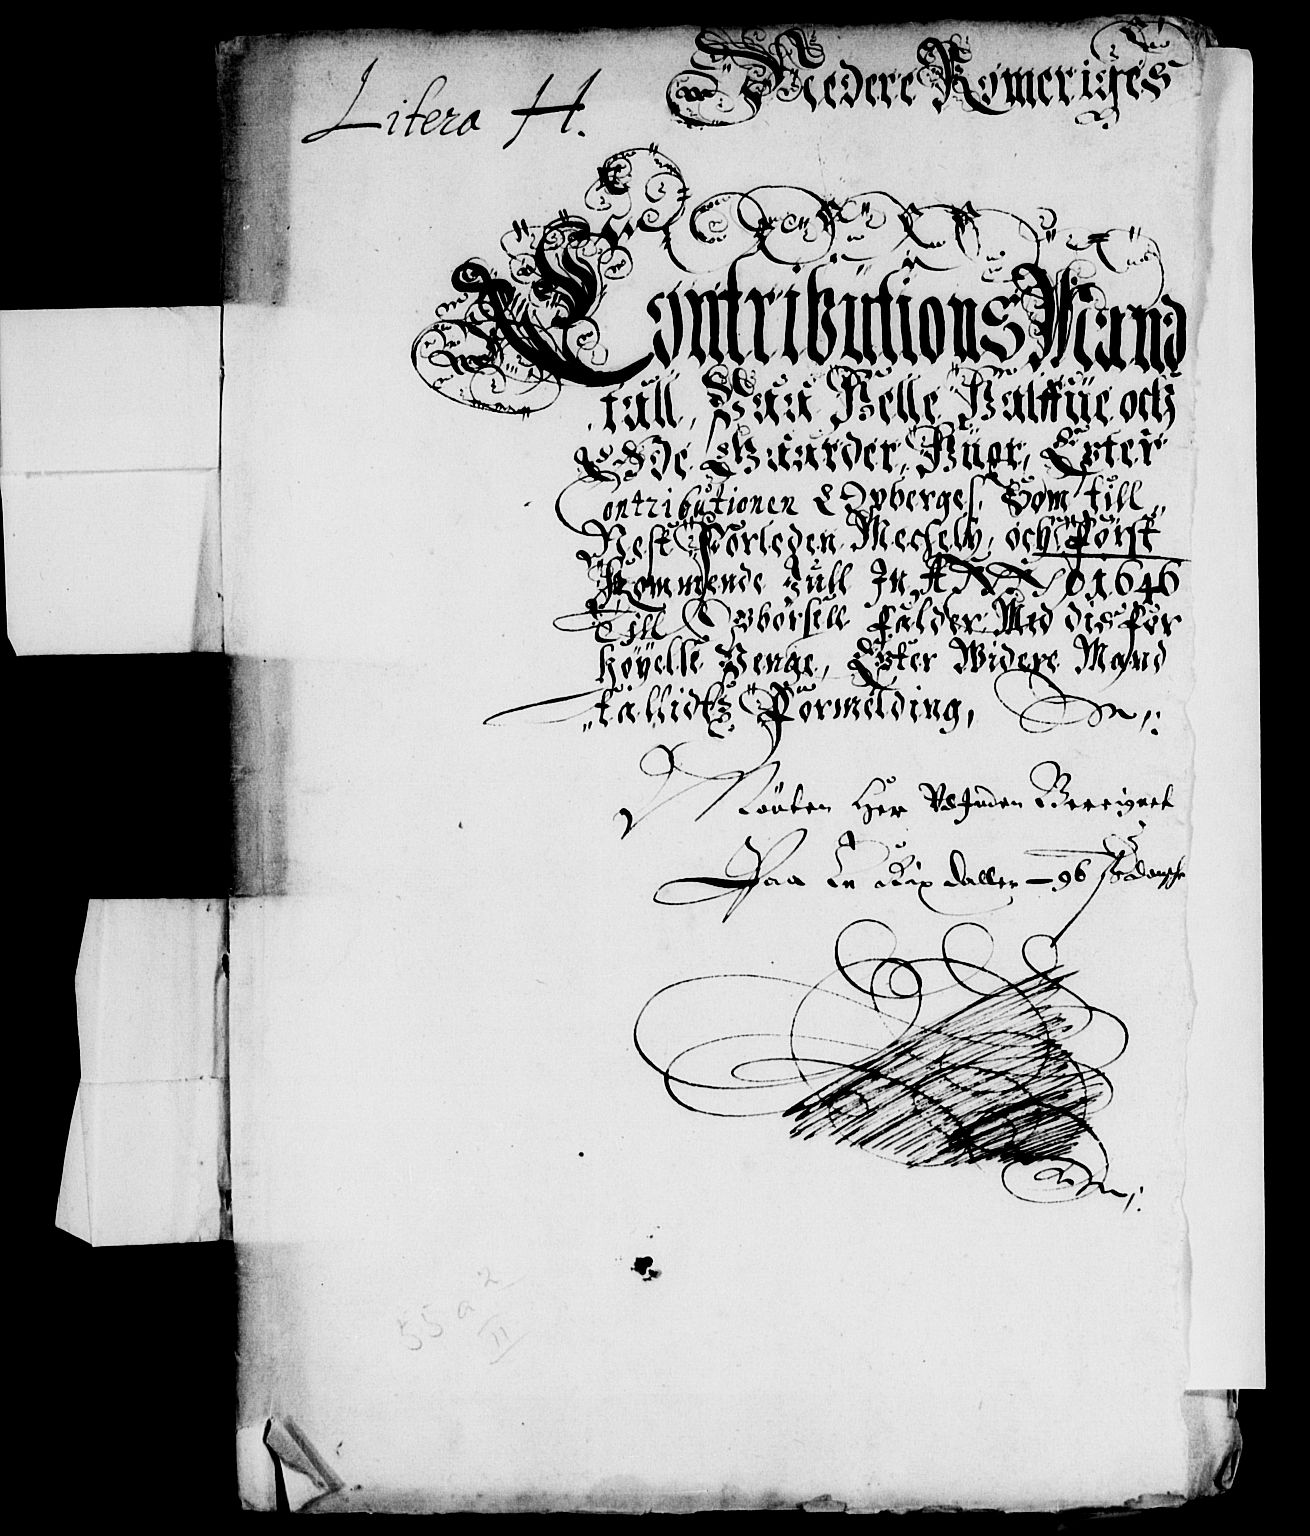 Litera H.
Nedere Romeriges
Contributions Mand
tall, Paa Helle Halffue och
Øde Gaarder, Huor Epter
Contributionen Opberges, Som till
Nest Forleden Mechely, och Først
Kommende Jull In ANNO 1646
Till Opbørsell falder Med dis For
høyelse Penge, Epter Widere Mand
tallidtz Formelding,
Mønten Her Vdinden Berregnet
Paa En Rix daller – 96 s danske
55 a 2
11